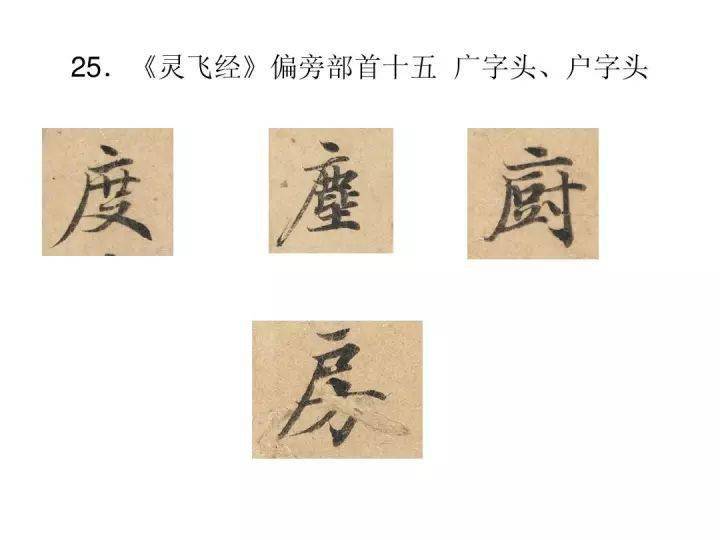 25. 《灵飞经》偏旁部首十五 广字头、户字头
度 塵 廚
房